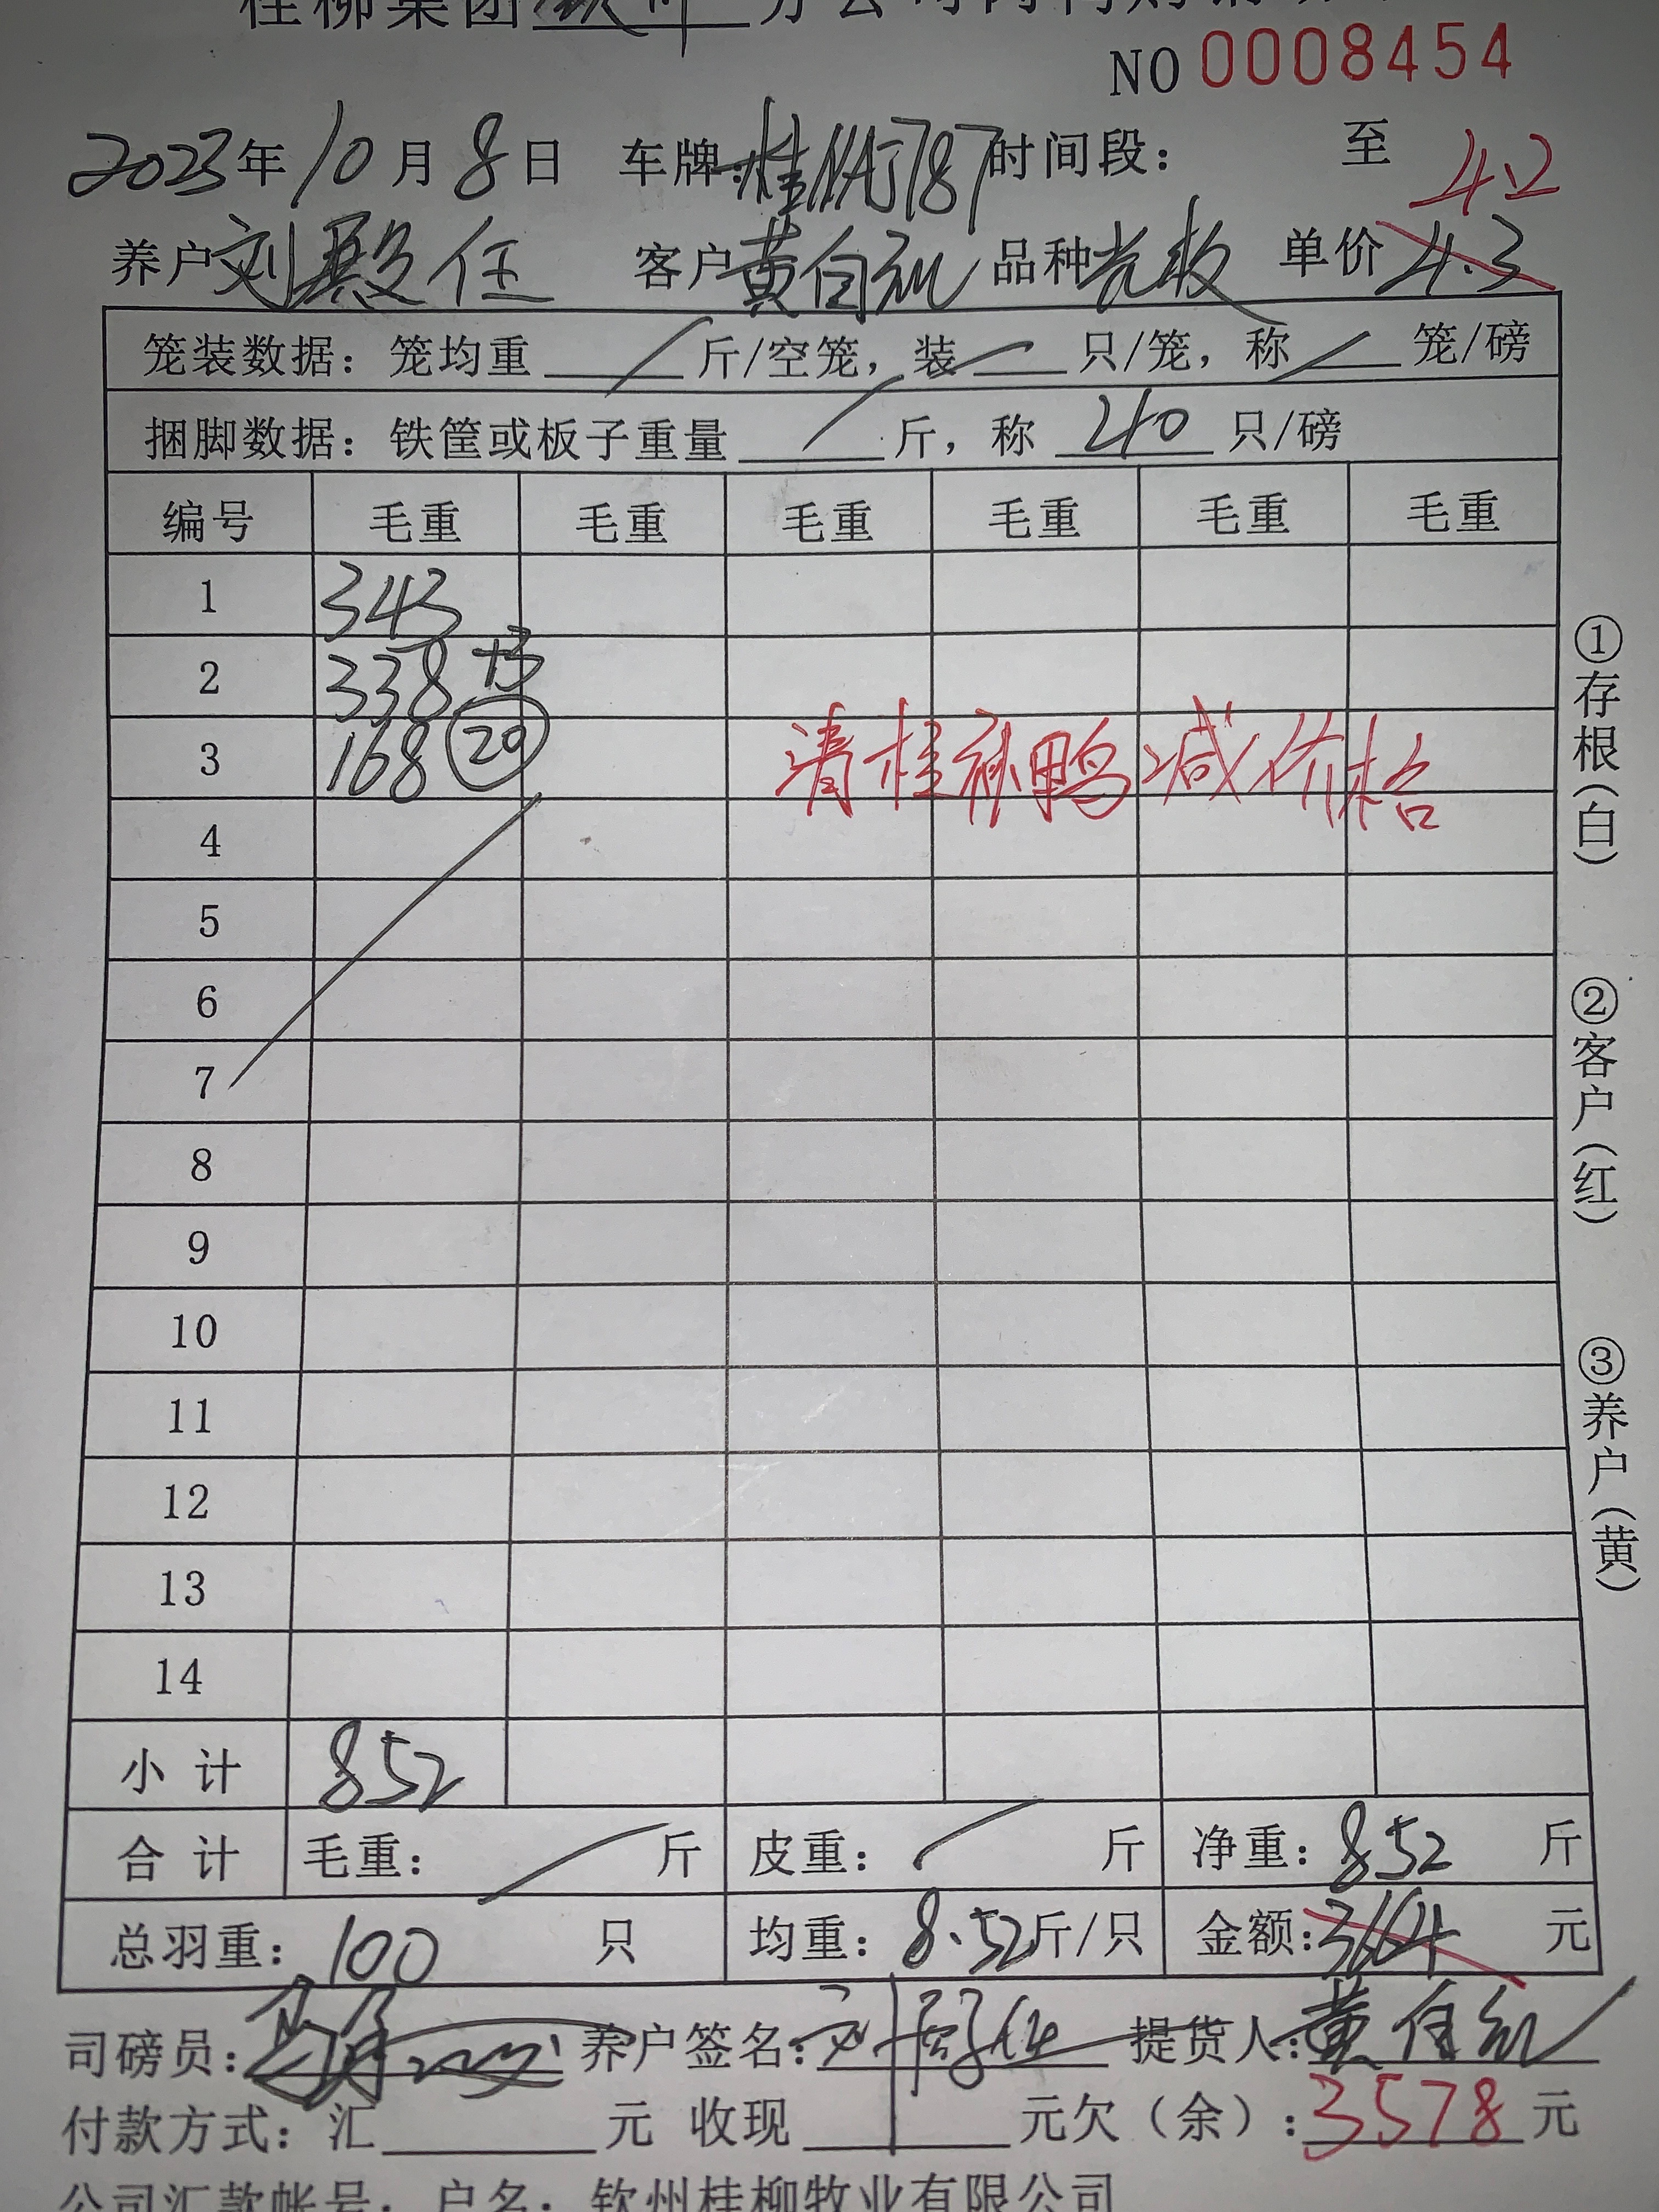 桂柳集团 分公司
NO 0008454
2023年10月8日 车牌:桂NAJ787 时间段: 至
4.2
养户 刘殿任 客户 黄自礼 品种 单价 4.3
笼装数据:笼均重 斤/空笼,装 只/笼,称 笼/磅
捆脚数据:铁筐或板子重量 斤,称 40 只/磅
编号 毛重 毛重 毛重 毛重 毛重 毛重
1 343
2 338 +3
3 168 20
清桂补鸭减价格
4
5
6
7
8
9
10
11
12
13
14
小计 852
合计 毛重: 斤 皮重: 斤 净重:852 斤
总羽重:100 只 均重:8.52斤/只 金额:3664 元
司磅员: 养户签名:刘殿任 提货人:黄自礼
付款方式:汇 元 收现 元欠(余):3578元
公司汇款帐号:户名:钦州桂柳牧业有限公司
①存根(白)
②客户(红)
③养户(黄)